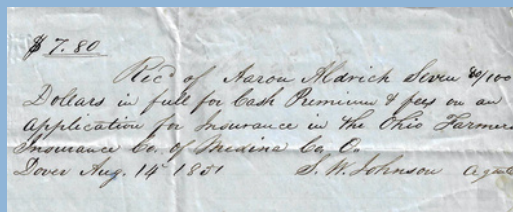 $ 7.80
Recd of Aaron Aldrich Seven 80/100
Dollars in full for Cash Premium & fees on an
application for Insurance in the Ohio Farmers
Insurance Co. of Medina Co. O.
Dover Aug. 14 1851 S. W. Johnson Agent